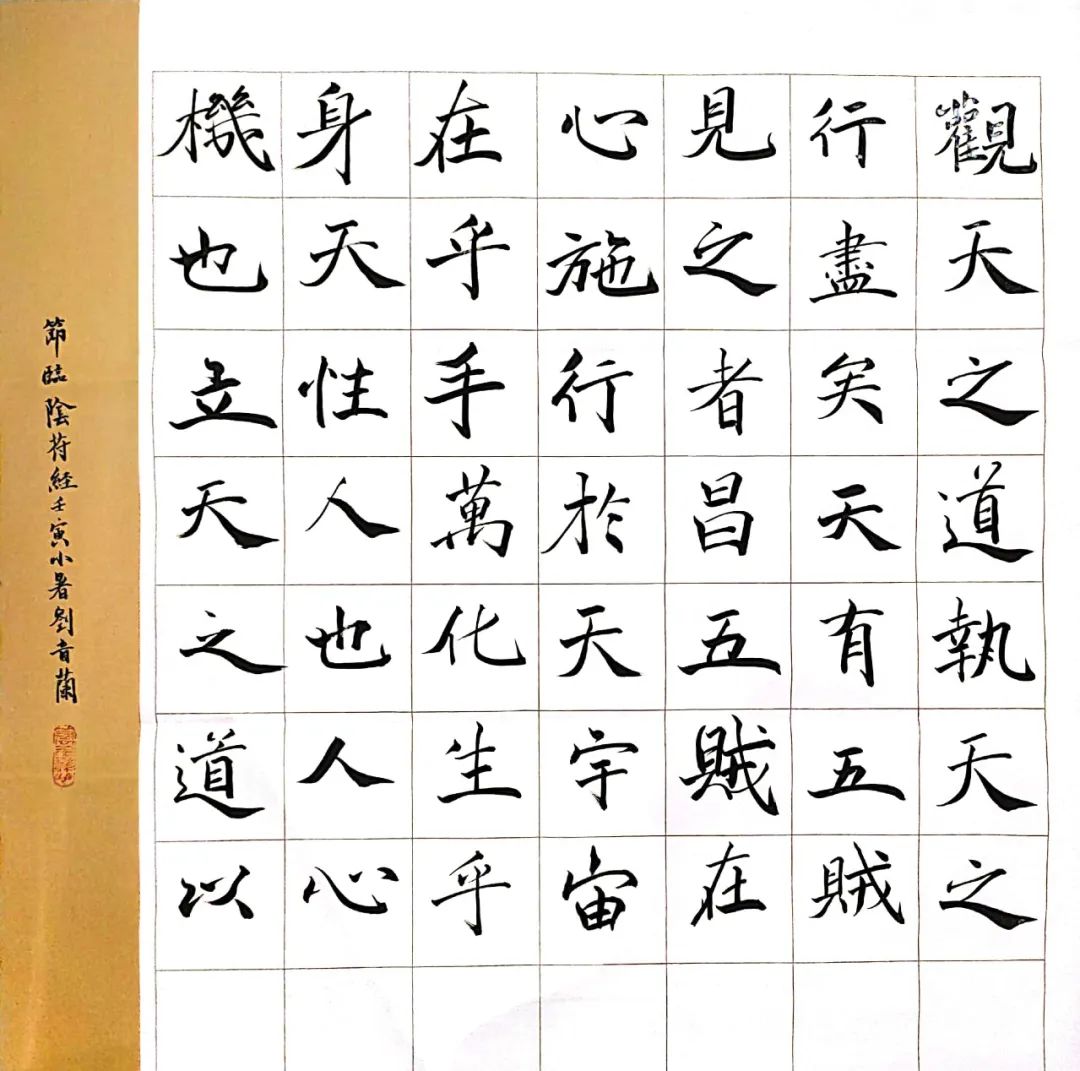 觀天之道執天之
行盡矣天有五賊
見之者昌五賊在
心施行於天宇宙
在乎手萬化生乎
身天性人也人心
機也立天之道以
節臨陰符經壬寅小暑劉青蘭